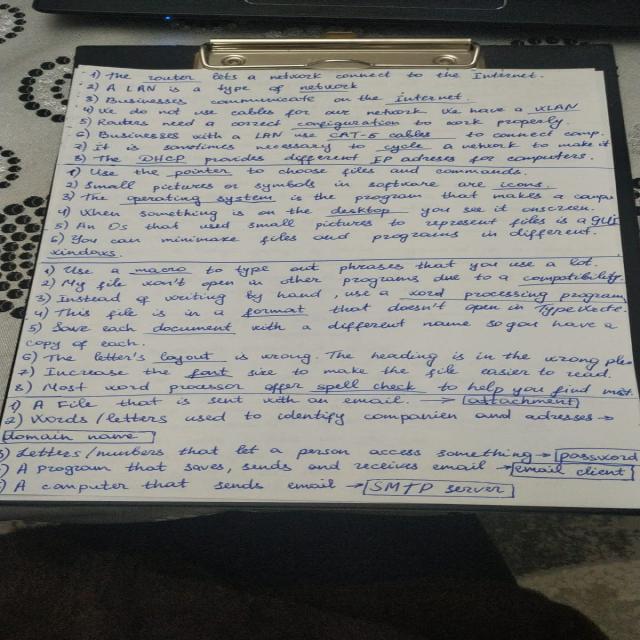 1) The router lets a network connect to the Internet.
2) A LAN is a type of network
3) Businesses communicate on the internet.
4) We do not use cables for our network we have a WLAN
5) Routers need a correct configuration to work properly.
6) Businesses with a LAN use CAT-5 cables to connect comp.
7) It is sometimes necessary to cycle a network to make it
8) The DHCP provides different IP adreses for computers.
1) Use the pointer to choose files and commands.
2) Small pictures or symbols in software are icons.
3) The operating system is the program that makes a comps
4) When something is on the desktop you see it onscreen.
5) An Os that used small pictures to represent files is a GUI
6) You can minimaxe files and programs in different.
windows.
1) Use a macro to type out phrases that you use a lot.
2) My file won't open in other programs due to a compatibility
3) Instead of writing by hand, use a word processing program
4) This file is in a format that doesn't open in TypeWrite.
5) Save each document with a different name so you have a
copy of each.
6) The letter's layout is wrong. The heading is in the wrong
7) Increase the font size to make the file easier to read.
8) Most word processor offer spell check to help you find mist.
1) A File that is sent with an email. → attachment
2) Words/letters used to identify companien and adresses →
domain name
3) Letters/numbers that let a person access something → password
) A program that saves, sends and receives email → email client
) A computer that sends email → SMTP server